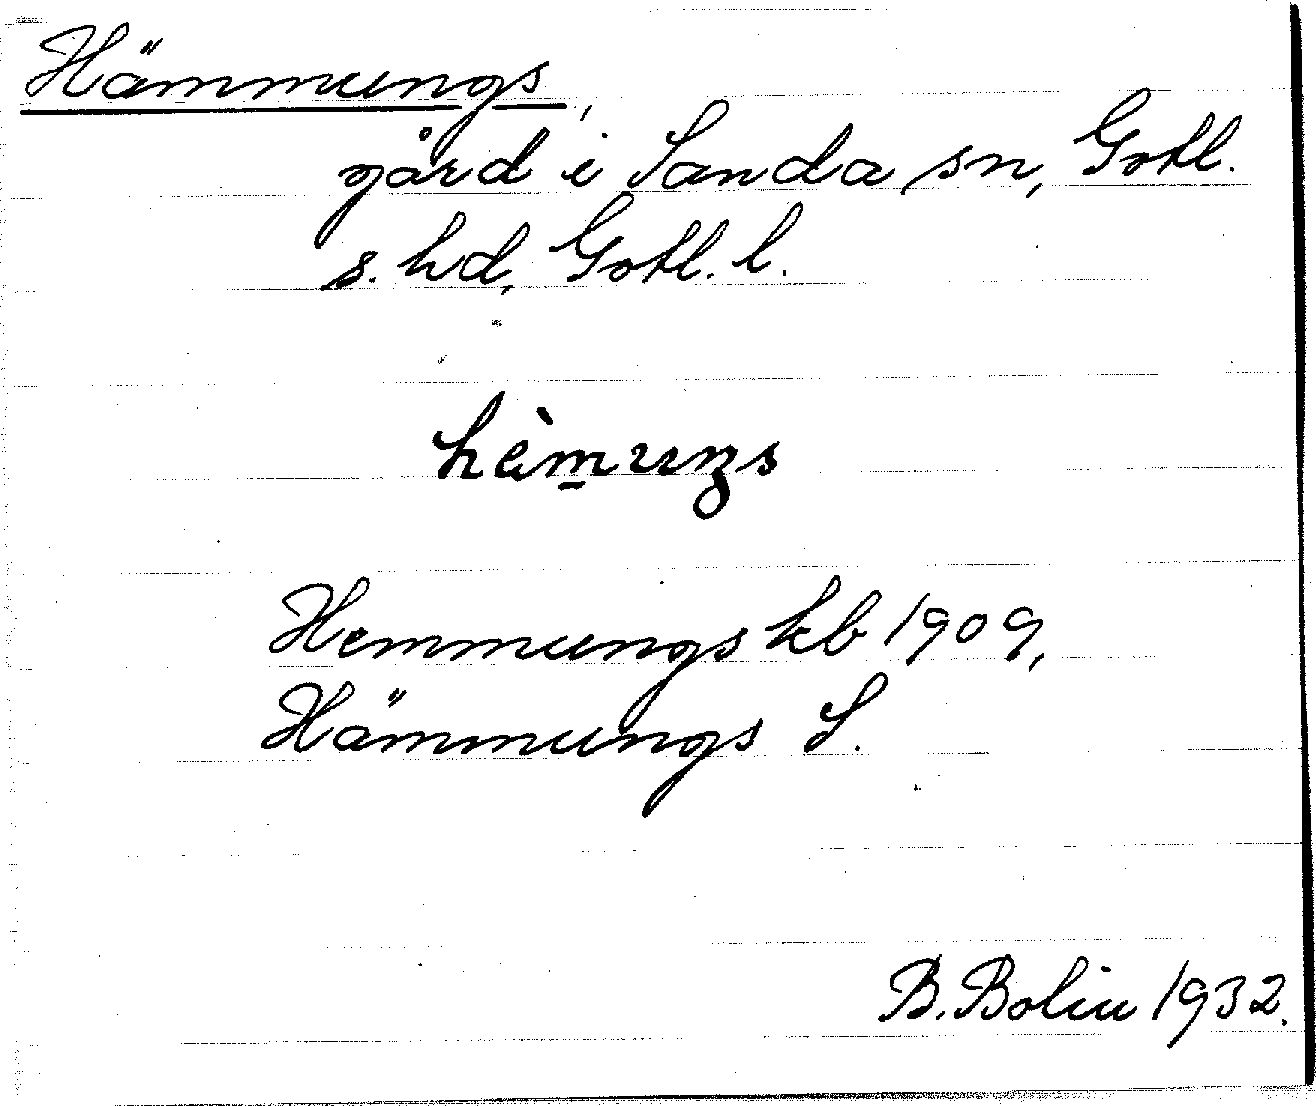 Hämmungs,
gård i Sanda sn, Gotl.
s. hd, Gotl. l.
hèm̠uŋs
Hemmungs kb 1909,
Hämmungs S.
B. Bolin 1932.